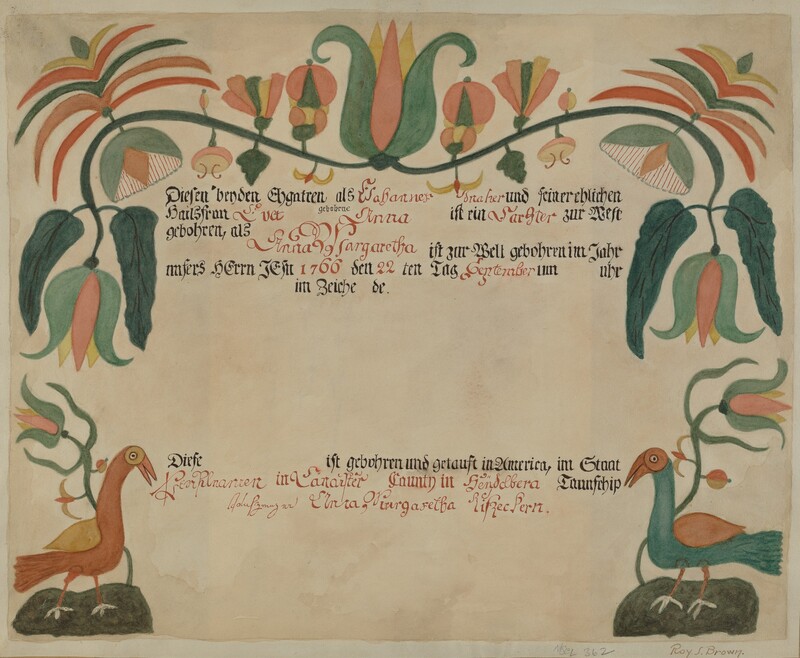 Diesen beyden Ehgatren als Johannes und seiner ehlichen
Hausfrau Anna ist ein zur Welt
gebohrne
gebohren, als
Anna Margaretha ist zur Well gebohren im Jahr
unsers HErrn JEsu 1766 den 22 ten Tag September um uhr
im Zeiche de.
Diese ist gebohren und getauft in America, im Staat
in Caunty in Heydelberg Taunschip
Anna Margaretha
362
Roy S. Brown.